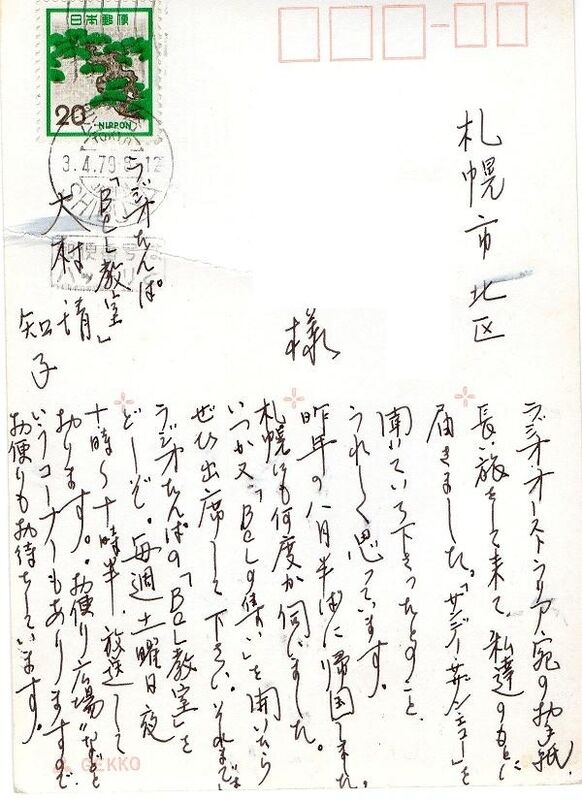 日本郵便
20
NIPPON
3.4.79
札幌市北区
様
ラジオたんぱ
「BCL教室」
大村 靖
知子
ラジオ・オーストラリア宛のお手紙、
長い旅をして来て、私達のもとに
届きました。「サンデーサザンショー」を
聞いていて下さったとのこと、
うれしく思っています。
昨年の八月半ばに帰国しました。
札幌にも何度か伺いました。
いつか又、「BCLの集い」を開いたら
ぜひ出席して下さい。それまでは
ラジオたんぱの「BCL教室」を
どーぞ。毎週土曜日夜
十時〜十時半、放送して
おります。"お便り広場"などと
いうコーナーもありますので、
お便りもお待ちしています。
GEKKO